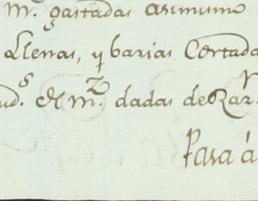 m.s gastadas asimismo
Llenas, y barias Cortada
ud.s de m.z dadas de Bar.r
Para á